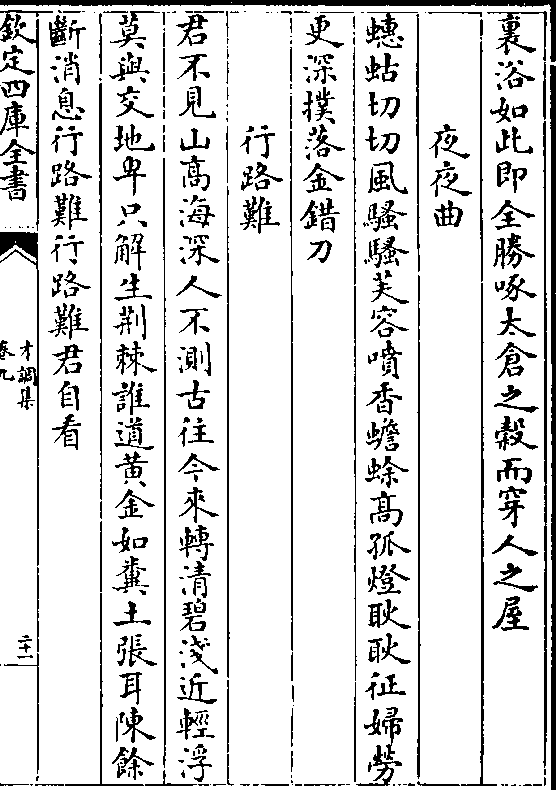 裏浴如此即全勝啄太倉之穀而穿人之屋
夜夜曲
蟪蛄切切風騷騷芙容噴香蟾蜍高孤燈耿耿征婦勞
更深撲落金錯刀
行路難
君不見山高海深人不測古往今來轉清碧淺近輕浮
莫與交地卑只解生荆棘誰道黄金如糞土張耳陳餘
斷消息行路難行路難君自看
欽定四庫全書
才調集
卷九
二十一